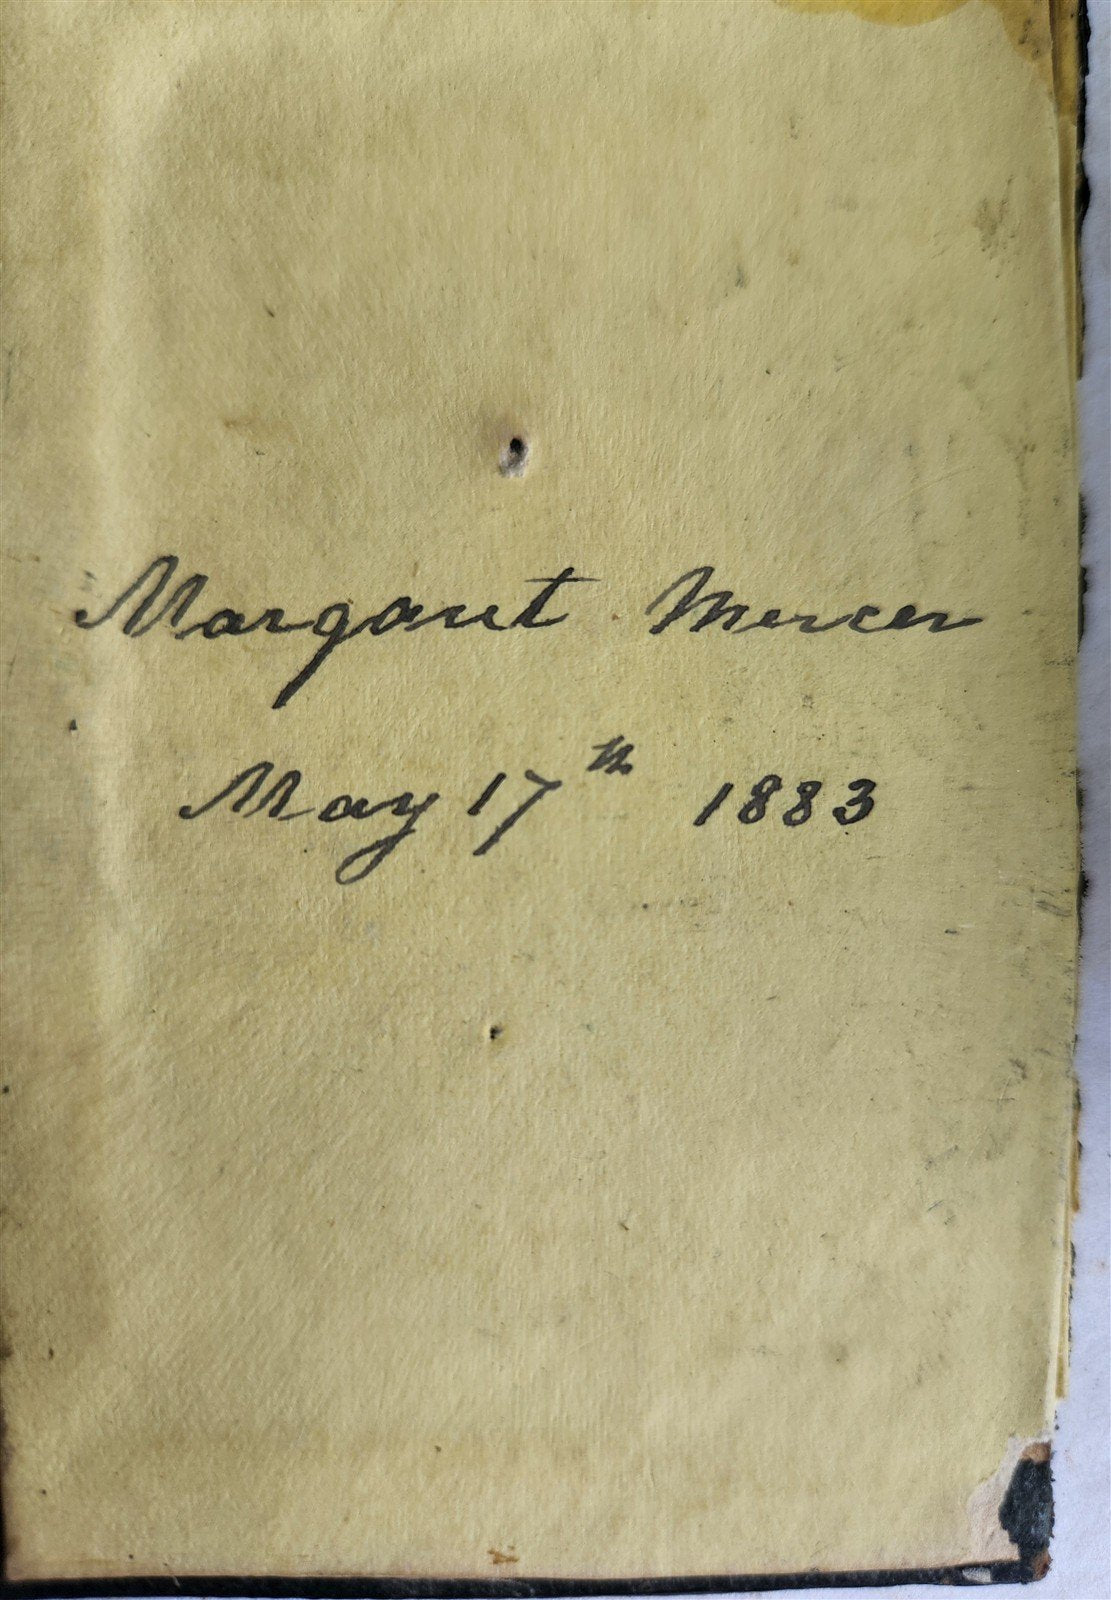 Margaret Mercer
May 17th 1883